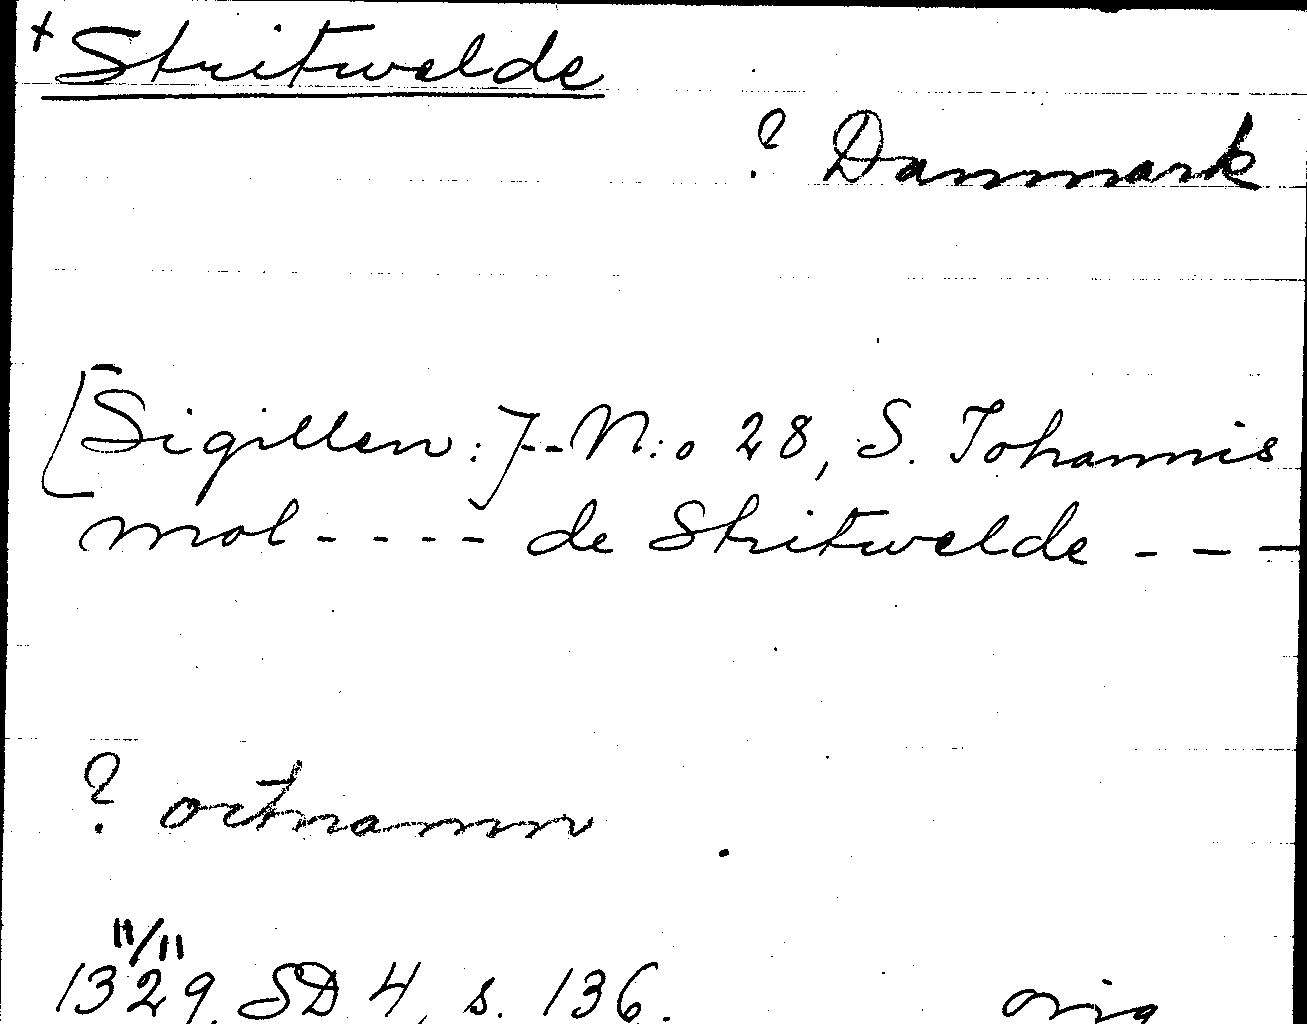 + Stritwelde
? Danmark
[Sigillen:] -- N:o 28, S. Johannis
mol---- de Stritwelde ---
? ortnamn
11/11
1329. SD 4, s. 136. orig